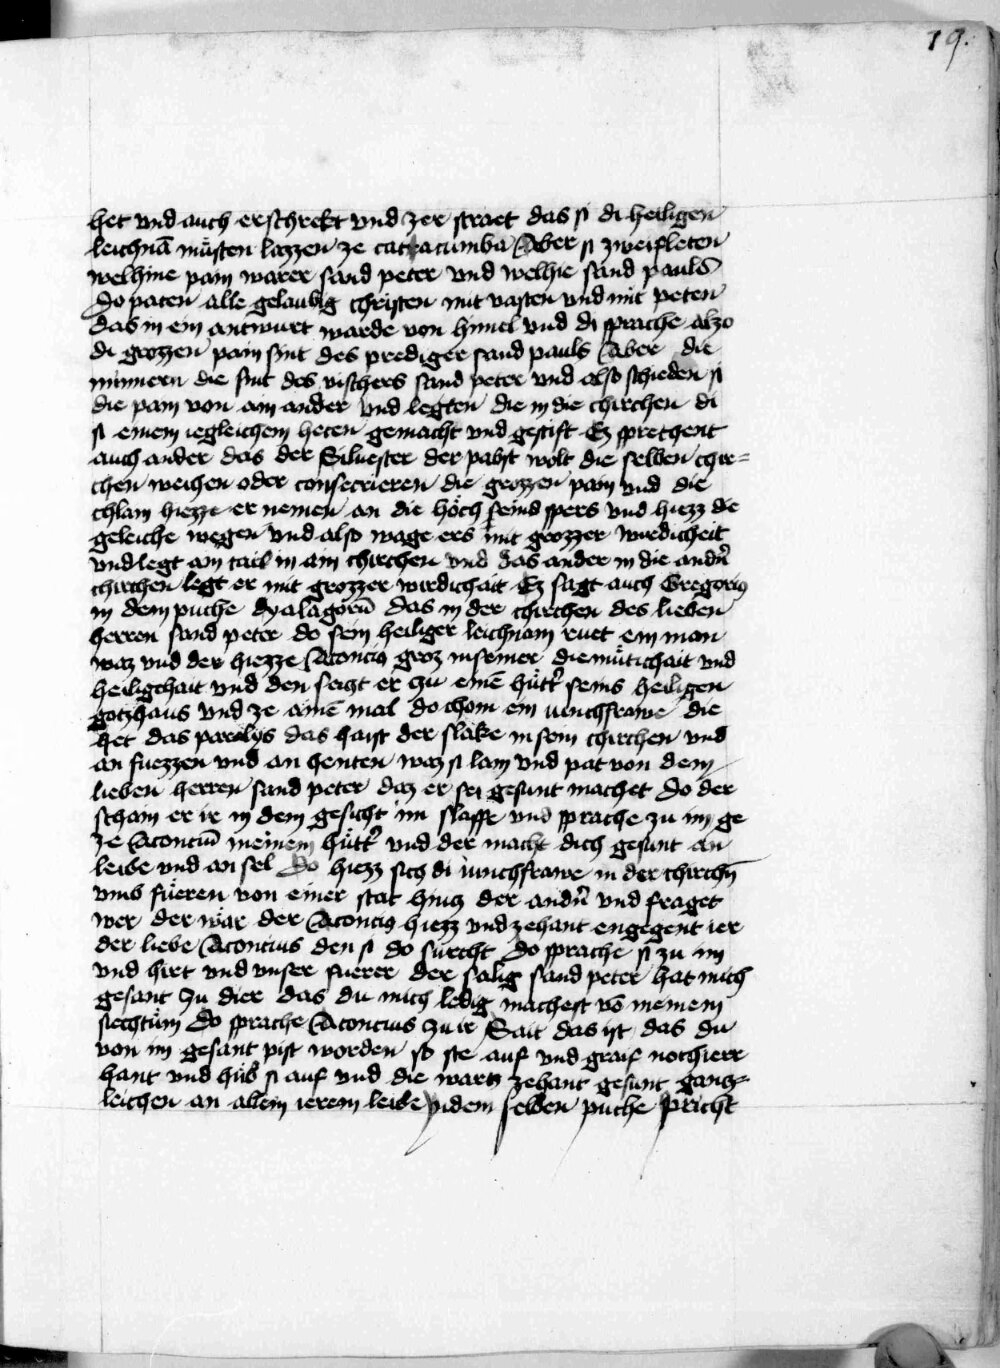 19.
het vnd auch erschrekt vnd zer straet das si di heiligen
leichnā muͤsten lazzen ze catacumba Aber si zweifleten
welhine pain warer sand peter vnd welhie sand pauls
Do paten alle gelaubig christen mit vasten vnd mit peten
das in ein antwurt warde von himel vnd di sprache alzo
di grozzen pain sint des prediger sand pauls Aber die
minnern die sint des vischers sand peter vnd also schieden si
die pain von ain ander vnd legten die in die chirchen di
si einem iegleichem heten gemacht vnd gestift Ez sprechent
auch ander das der Siluester der pabst wolt die selben chir=
chen weichen oder consecrieren die grozzen pain vnd die
chlain hiezze er nemen an die hoͤch seind spers vnd hiezz die
geleiche wegen vnd also wage ers mit grozzer wirdicheit
vnd legt ain tail in ain chirchen vnd das ander in die andn̄
chirchen legt er mit grozzer wirdichait Ez sagt auch Gregorius
in dem puche dyalagorū das in der chirchen des lieben
herren sand peter do sein heiliger leichnam ruet ein man
waz vnd der hiezze Aconcius groz in seiner diemuͤtichait vnd
heiligchait vnd den seczt er zu einē huͤtt̄ seins heiligen
gotzhaus vnd ze ainē mal do chom ein iunchfrawe die
het das paralys das haist der slake in sein chirchen vnd
an fuezzen vnd an henten waz si lam vnd pat von dem
lieben herren sand peter daz er sei gesunt machet Do der
schain er ir in dem gesicht im slaffe vnd sprache zu im ge
ze Aconciū meinem huͤtt̄ vnd der macht dich gesunt an
leibe vnd an sel Do hiezz sich di iunchfrawe in der chirchn̄
vmb fuͤeren von einer stat hincz der andn̄ vnd fraget
wer der waͤr der Aconcius hiezz vnd zehant engegent ier
der liebe Aconcius den si do suͤecht Do sprache si zu im
vnd hirt vnd vnser fuerer der salig sand peter hat mich
gesant zu dier das du mich ledig machest vō meinem
siechtuͤm Do sprache Aconcius zu ir Sait das ist das du
von im gesant pist worden so ste auf vnd graif noch ierr
hant vnd huͤb si auf vnd die wartz zehant gesunt gancz=
leichen an allem ierem leibe indem selben puche spricht